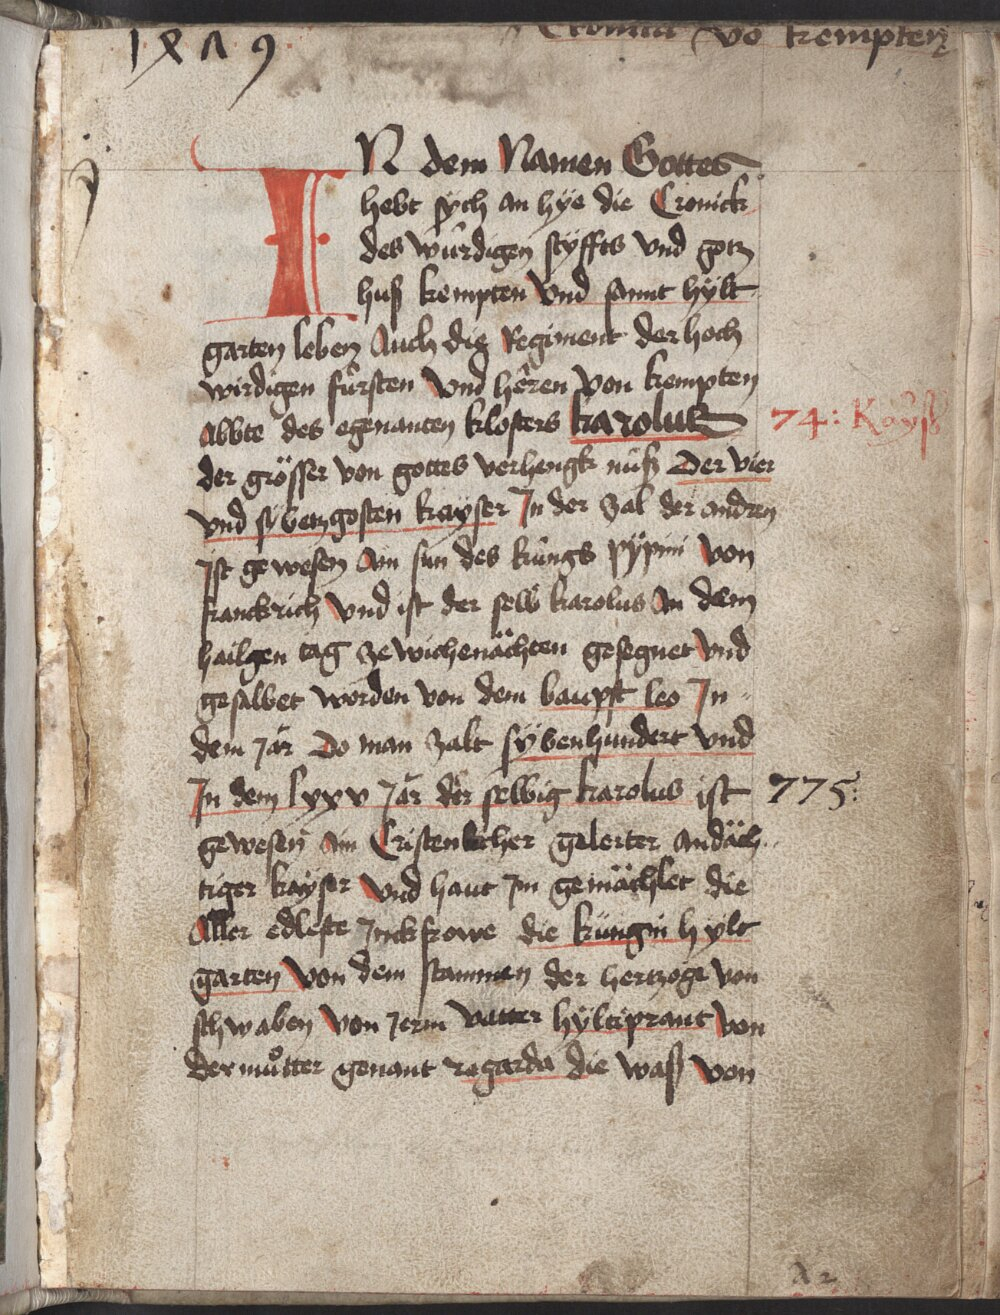 Cronica vō kempten
IN dem Namen Gottes
hebt sych an hÿe die Cronick
des würdigen stÿffts vnd gotz
huß kempten Vnd sannt hÿlt
garten leben Auch die Regiment der hoch
wirdigen fürsten Vnd heren Von kempten
Abbte des egenanten klosters karolus
74: Kayß
der grösser von gottes verhengk nuß Der vier
vnd sybentzgosten kayser In der zal der andren
Ist gewesen Ain sun des küngs pÿpini Von
franckrich Vnd ist der selb karolus An dem
hailgen tag ze wichenächten gesegnet Vnd
gesalbet worden von dem baupst leo In
dem Jar Do man zalt sÿbenhundert vnd
In dem lxxv Jar der selbig karolus ist
775:
gewesen ain Cristenlicher gelerter andäch
tiger kayser Vnd haut Im gemächlet die
Aller edleste Junckfrowe die küngin hÿlt
garten Von dem stammen der hertzoge von
schwaben Von Jerm vatter hÿltiprant Von
der muͦtter genant regarda die waß Von
A 2